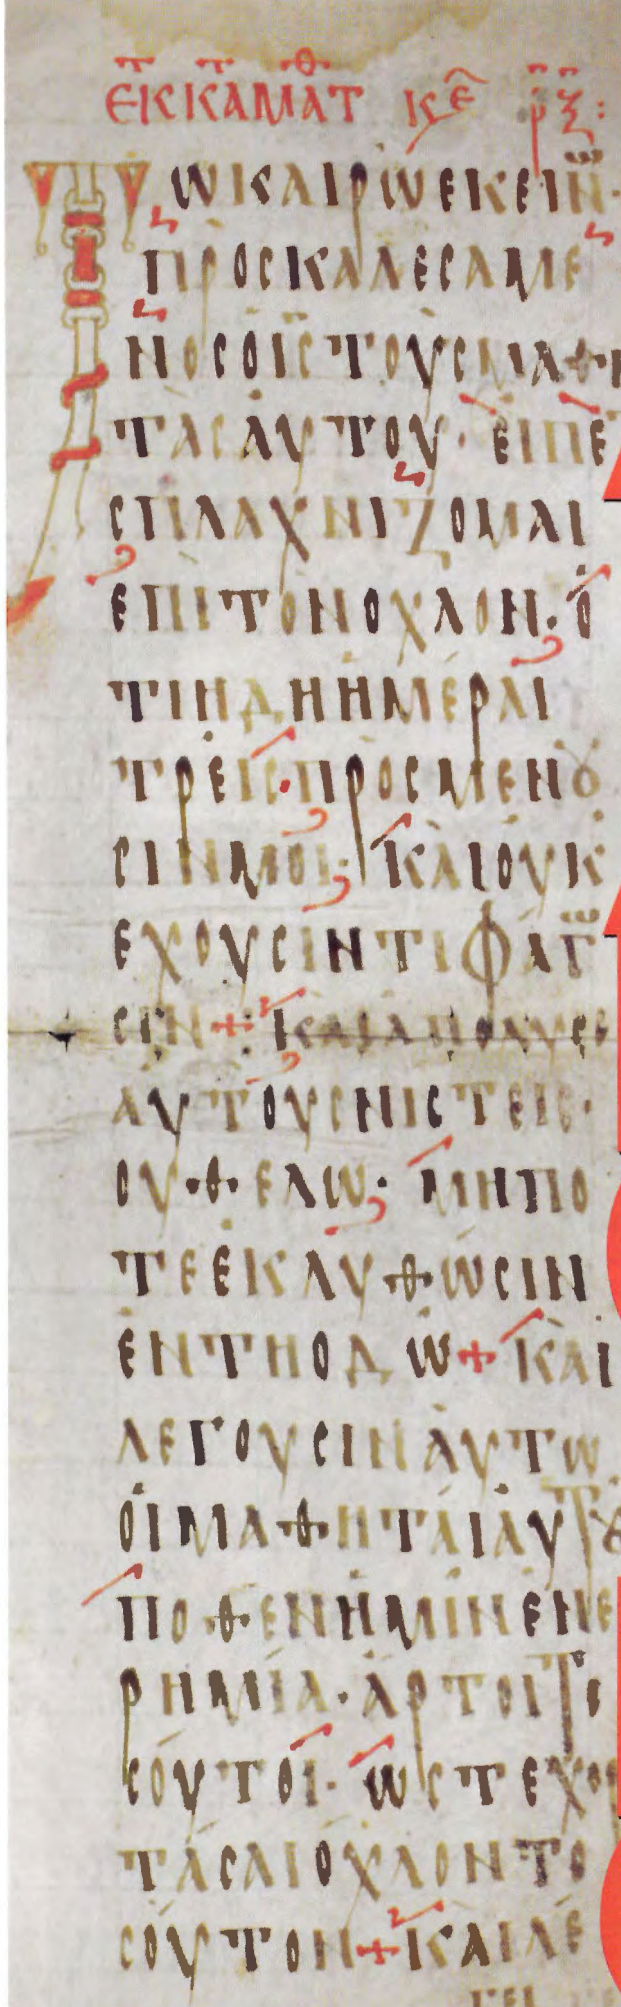 ΕΚ ΚΑΤΑ ΜΑΤΘ ΚΕ ΡΞ:
ΤΩ ΚΑΙΡΩ ΕΚΕΙΝ·
ΠΡΟΣΚΑΛΕΣΑΜΕ
ΝΟΣ Ο ΙΣ ΤΟΥΣ ΜΑΘΗ
ΤΑΣ ΑΥΤΟΥ· ΕΙΠΕ
ΣΠΛΑΧΝΙΖΟΜΑΙ
ΕΠΙ ΤΟΝ ΟΧΛΟΝ· Ο
ΤΙ ΗΔΗ ΗΜΕΡΑΙ
ΤΡΕΙΣ· ΠΡΟΣΜΕΝΟΥ
ΣΙΝ ΜΟΙ· ΚΑΙ ΟΥΚ
ΕΧΟΥΣΙΝ ΤΙ ΦΑΓΩ
ΣΙΝ + ΚΑΙ ΑΠΟΛΥΣΑΙ
ΑΥΤΟΥΣ ΝΙΣΤΕΙΣ·
ΟΥ ΘΕΛΩ· ΜΗΠΟ
ΤΕ ΕΚΛΥΘΩΣΙΝ
ΕΝ ΤΗ ΟΔΩ + ΚΑΙ
ΛΕΓΟΥΣΙΝ ΑΥΤΩ
ΟΙ ΜΑΘΗΤΑΙ ΑΥΤΟΥ
ΠΟΘΕΝ ΗΜΙΝ ΕΝ Ε
ΡΗΜΙΑ· ΑΡΤΟΙ ΤΟ
ΣΟΥΤΟΙ· ΩΣΤΕ ΧΟΡ
ΤΑΣΑΙ ΟΧΛΟΝ ΤΟ
ΣΟΥΤΟΝ + ΚΑΙ ΛΕ
ΓΕΙ